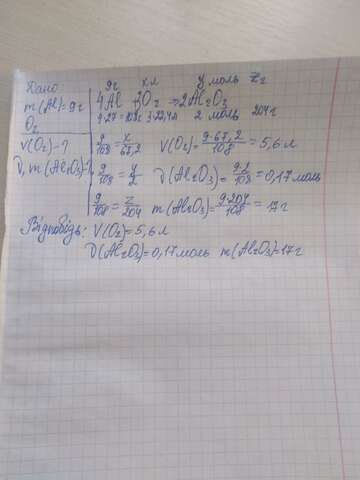 Дано
m(Al)=9г
O₂
V(O₂)-?
ν, m(Al₂O₃)-?
9г x л y моль z г
4Al + 3O₂ → 2Al₂O₃
4·27=108г 3·22,4л 2 моль 204г
9/108 = x/67,2 V(O₂)= 9·67,2/108 = 5,6 л
9/108 = y/2 ν(Al₂O₃)= 9·2/108 = 0,17 моль
9/108 = z/204 m(Al₂O₃)= 9·204/108 = 17 г
Відповідь: V(O₂)=5,6 л
ν(Al₂O₃)=0,17 моль m(Al₂O₃)=17 г